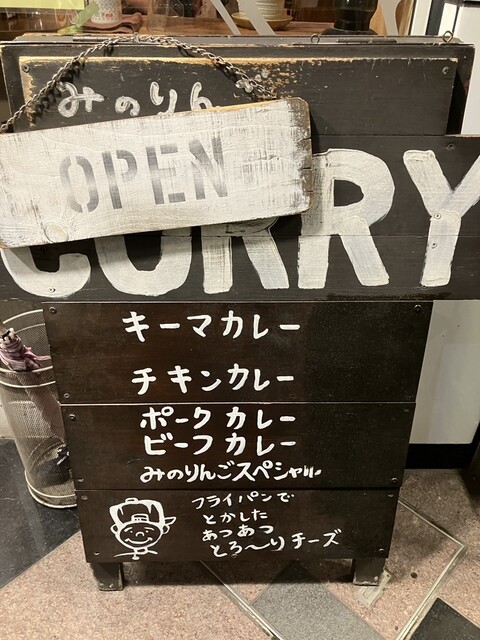 みのりん
OPEN
CURRY
キーマカレー
チキンカレー
ポークカレー
ビーフカレー
みのりんごスペシャル
フライパンで
とかした
あつあつ
とろ〜りチーズ